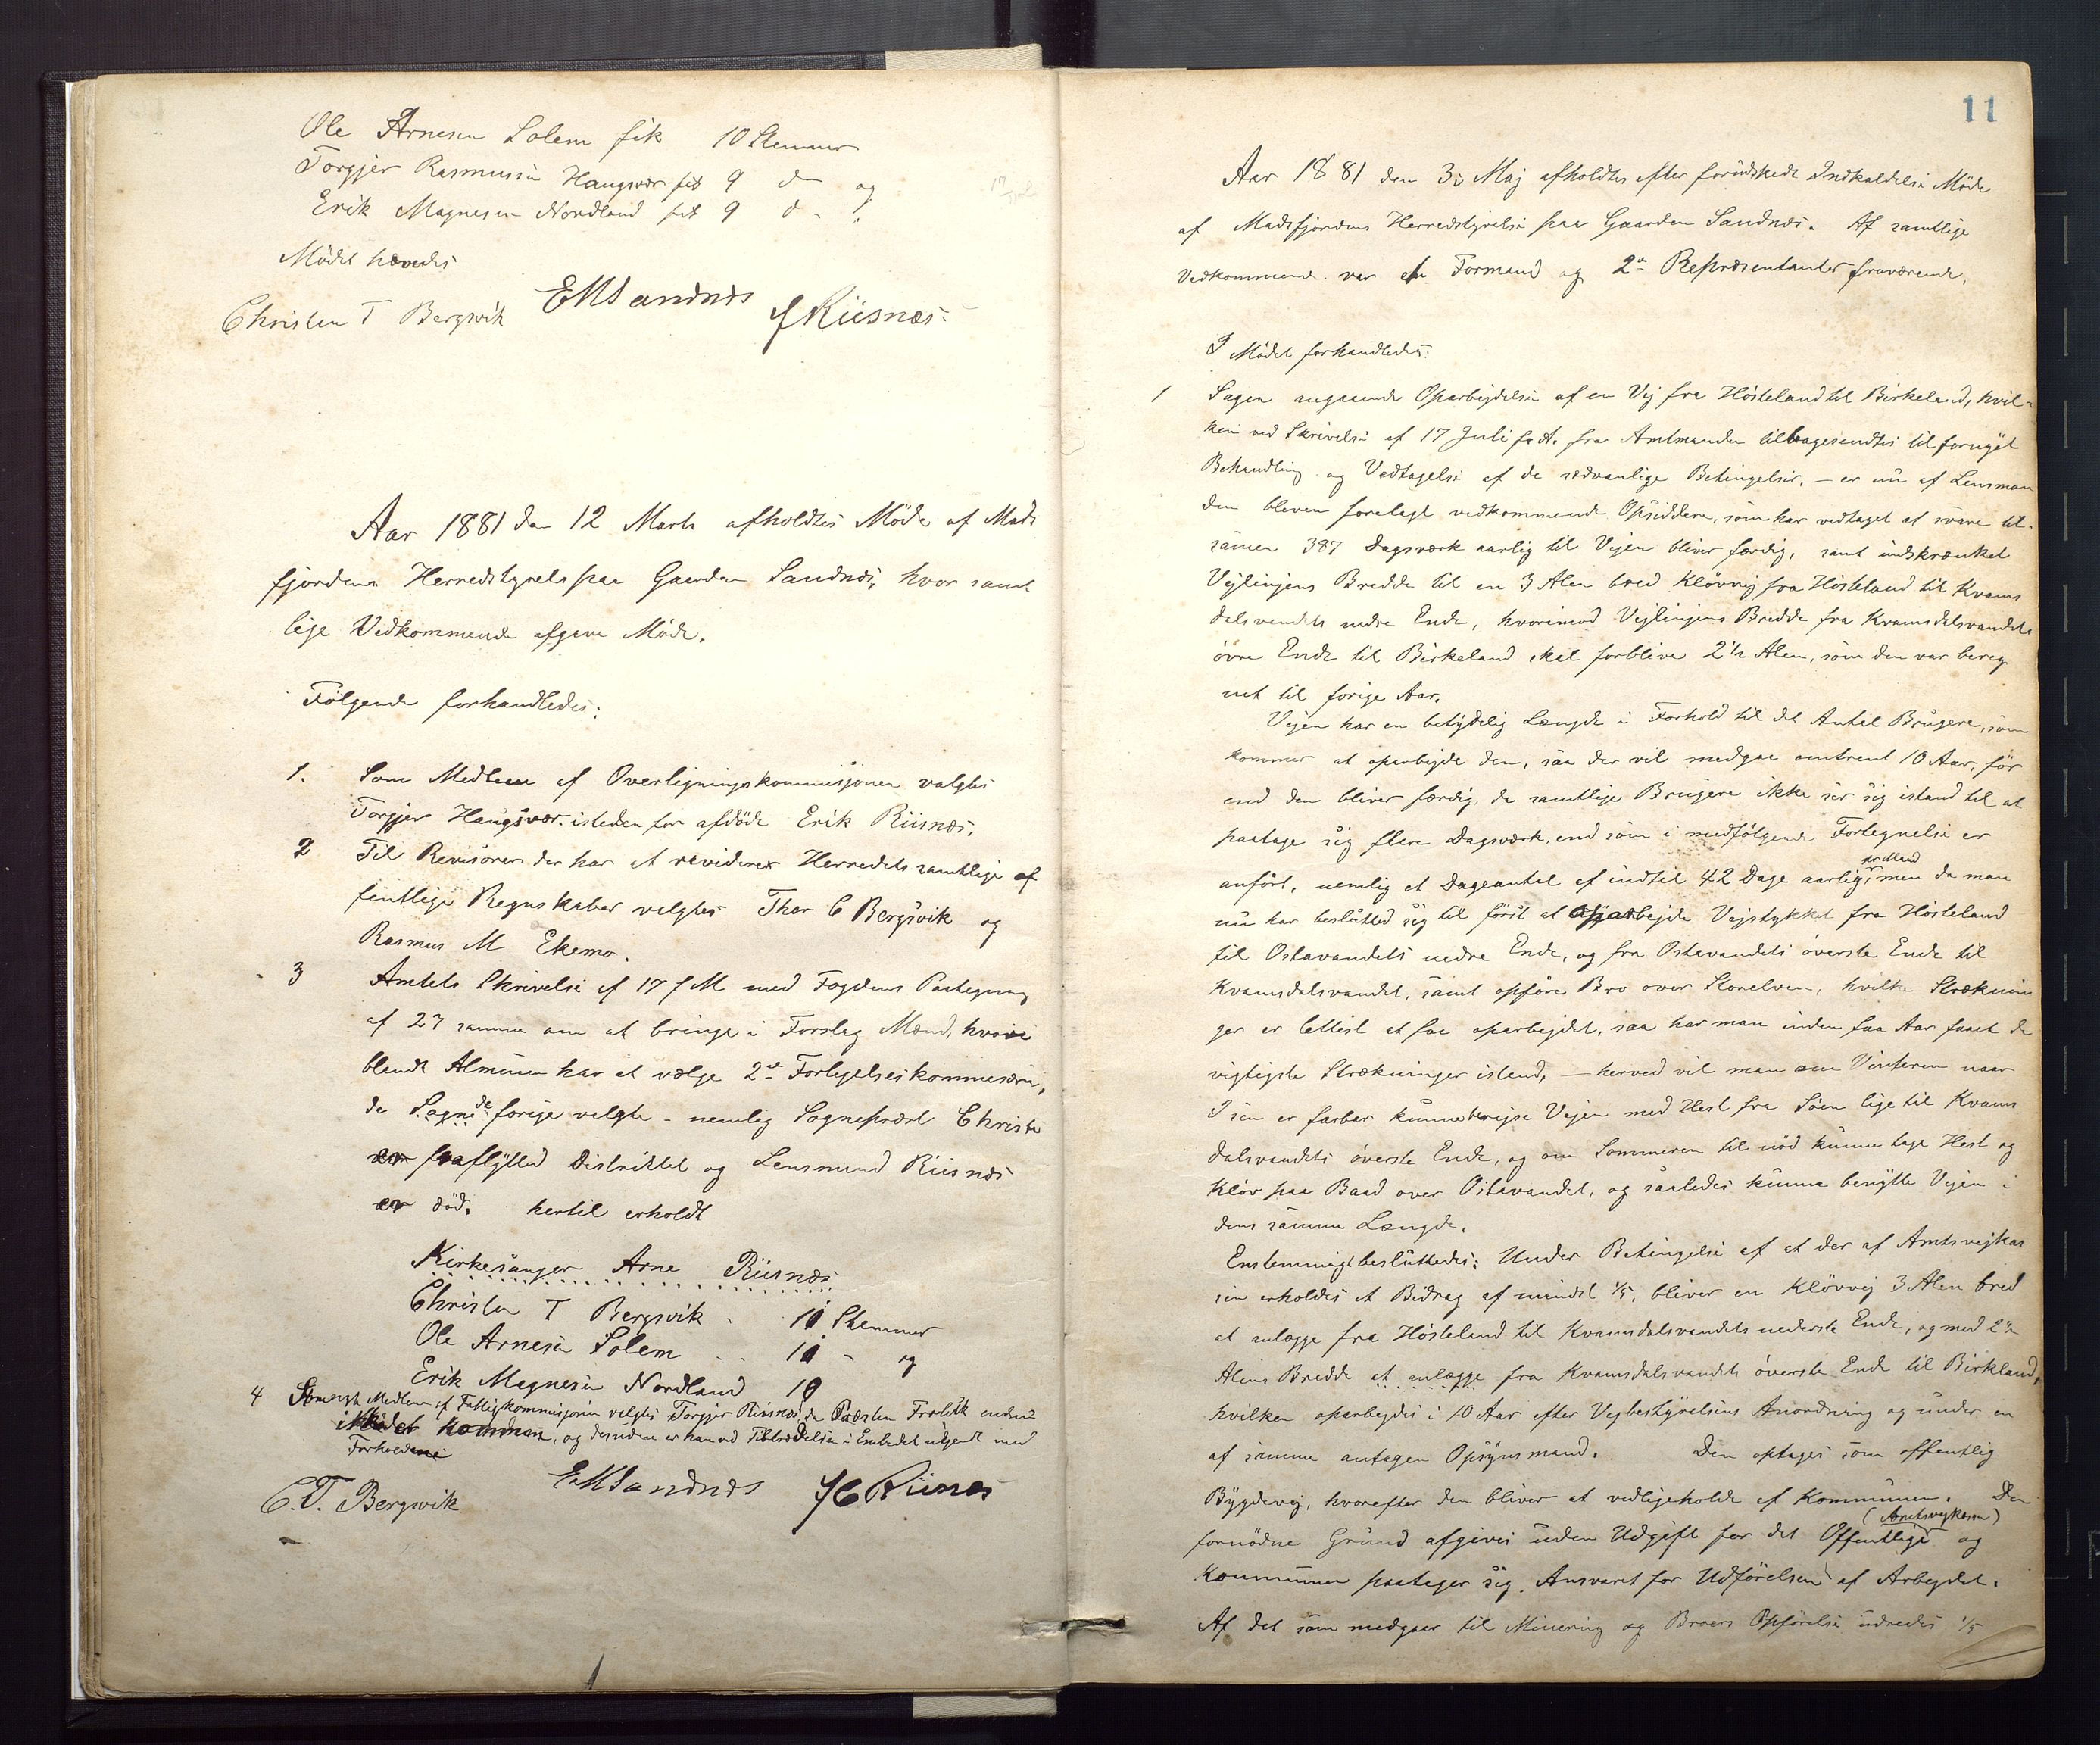 Ole Arnesen Solem fik 10 Stemmer
Torgjer Rasmussen Haugsvær fik 9 d- og
Erik Magnesen Nordland fik 9 d-
Mödet hævedes
Christen T Bergsvik EMSandnæs J Riisnæs.
Aar 1881 den 12 Marts afholdtes Möde af Mads
fjordens Herredstyrelse paa Gaarden Sandnæs, hvor samt
lige Vedkommende afgave Möde.
Fölgende forhandledes:
1. Som Medlem af Overligningskommissjonen valgtes
Torgjer Haugsvær istedenfor afdöde Erik Riisnæs.
2 Til Revisorer der har at reviderer Herredets samtlige of
fentlige Regnskaber valgtes Thor C Bergsvik og
Rasmus M Ekemo.
3 Amtets Skrivelse af 17 f M med Fogdens Paategning
af 27 samme om at bringe i Forslag Mænd, hvori
blandt Almuen har at vælge 2de Forligelseskommissærer,
da Sogne de forige valgte - nemlig Sogneprest Christe
er fraflytted Distriktet og Lensmand Riisnæs
er död. hertil erholdt
Kirkesanger Arne Riisnæs
Christen T Bergsvik - 10 Stemmer
Ole Arnesen Solem - - 10 - og
Erik Magnesen Nordland 10
4 Som nyt Medlem af Fattigkommissjonen valgtes Torgjer Riisnæs, da Præsten endnu
ikke er kommen, og desuden er han ved Tiltrædelsen i Embedet ukjendt med
Forholdene
C.T. Bergsvik EMSandnæs J C Riisnæs
11
Aar 1881 den 3i Maj afholdtes efter forudskedt Indkaldelse Möde
af Madsfjordens Herredstyrelse paa Gaarden Sandnæs. Af samtlige
Vedkommende var en Formand og 2de Repræsentanter fraværende.
I Mödet forhandledes:
1 Sagen angaaende Oparbejdelse af en Vej fra Hösteland til Birkeland, hvil-
ken ved Skrivelse af 17 Juli f. A. fra Amtmanden tilbagesendtes til fornyet
Behandling og Vedtagelse af de sedvanlige Betingelser, - er nu af Lensman
den bleven forelagt vedkommende Opsiddere, som har vedtaget at svare til-
samen 387 Dagsværk aarlig til Vejen bliver færdig, samt indskrænket
Vejlinjens Bredde til en 3 Alen bred Klövvej fra Hösteland til Kvams
dalsvandets nedre Ende, hvorimod Vejlinjens Bredde fra Kvamsdalsvandets
övre Ende til Birkeland skal forblive 2½ Alen, som den var bereg
net til forige Aar.
Vejen har en betydelig Længde i Forhold til det Antal Brugere, som
kommer at oparbejde den, saa der vil medgaa omtrent 10 Aar, för
end den bliver færdig, da samtlige Brugere ikke ser sig istand til at
paatage sig flere Dagsværk, end som i medfölgende Fortegnelse er
anfört, nemlig et Dageantal af indtil 42 Dage aarlig pr Mand, men da man
nu har besluttet sig til först at oparbejde Vejstykket fra Hösteland
til Ostavandets nedre Ende, og fra Ostavandets överste Ende til
Kvamsdalsvandet, samt opföre Bro over Storelven, hvilke Stræknin
ger er lettest at faa oparbejdet, saa har man inden faa Aar faaet de
vigtigste Strækninger istand, - herved vil man om Vinteren naar
Isen er farbar kunne berejse Vejen med Hest fra Söen lige til Kvams
dalsvandets överste Ende, og om Sommeren til nöd kunne tage Hest og
Klöv paa Baad over Ostavandet, og saaledes kunne benytte Vejen i
dens samme Længde.
Enstemmig besluttedes: Under Betingelse af at der af Amtsvejkas
sen erholdes et Bidrag af mindst 1/5, bliver en Klövvej 3 Alen bred
at anlægge fra Hösteland til Kvamsdalsvandets nederste Ende, og med 2½
Alens Bredde at anlægge fra Kvamsdalsvandets överste Ende til Birkland,
hvilken oparbejdes i 10 Aar efter Vejbestyrelsens Anordning og under en
af samme antagen Opsynsmand. Den optages som offentlig
Bygdevej, hvorefter den bliver at vedligeholde af Kommunen. Den
fornödne Grund afgives uden Udgift for det Offentlige (Amtsvejkassen) og
Kommunen paatager sig Ansvaret for Udförelsen af Arbejdet.
Af det som medgaar til Minering og Broers Opförelse udredes 1/5